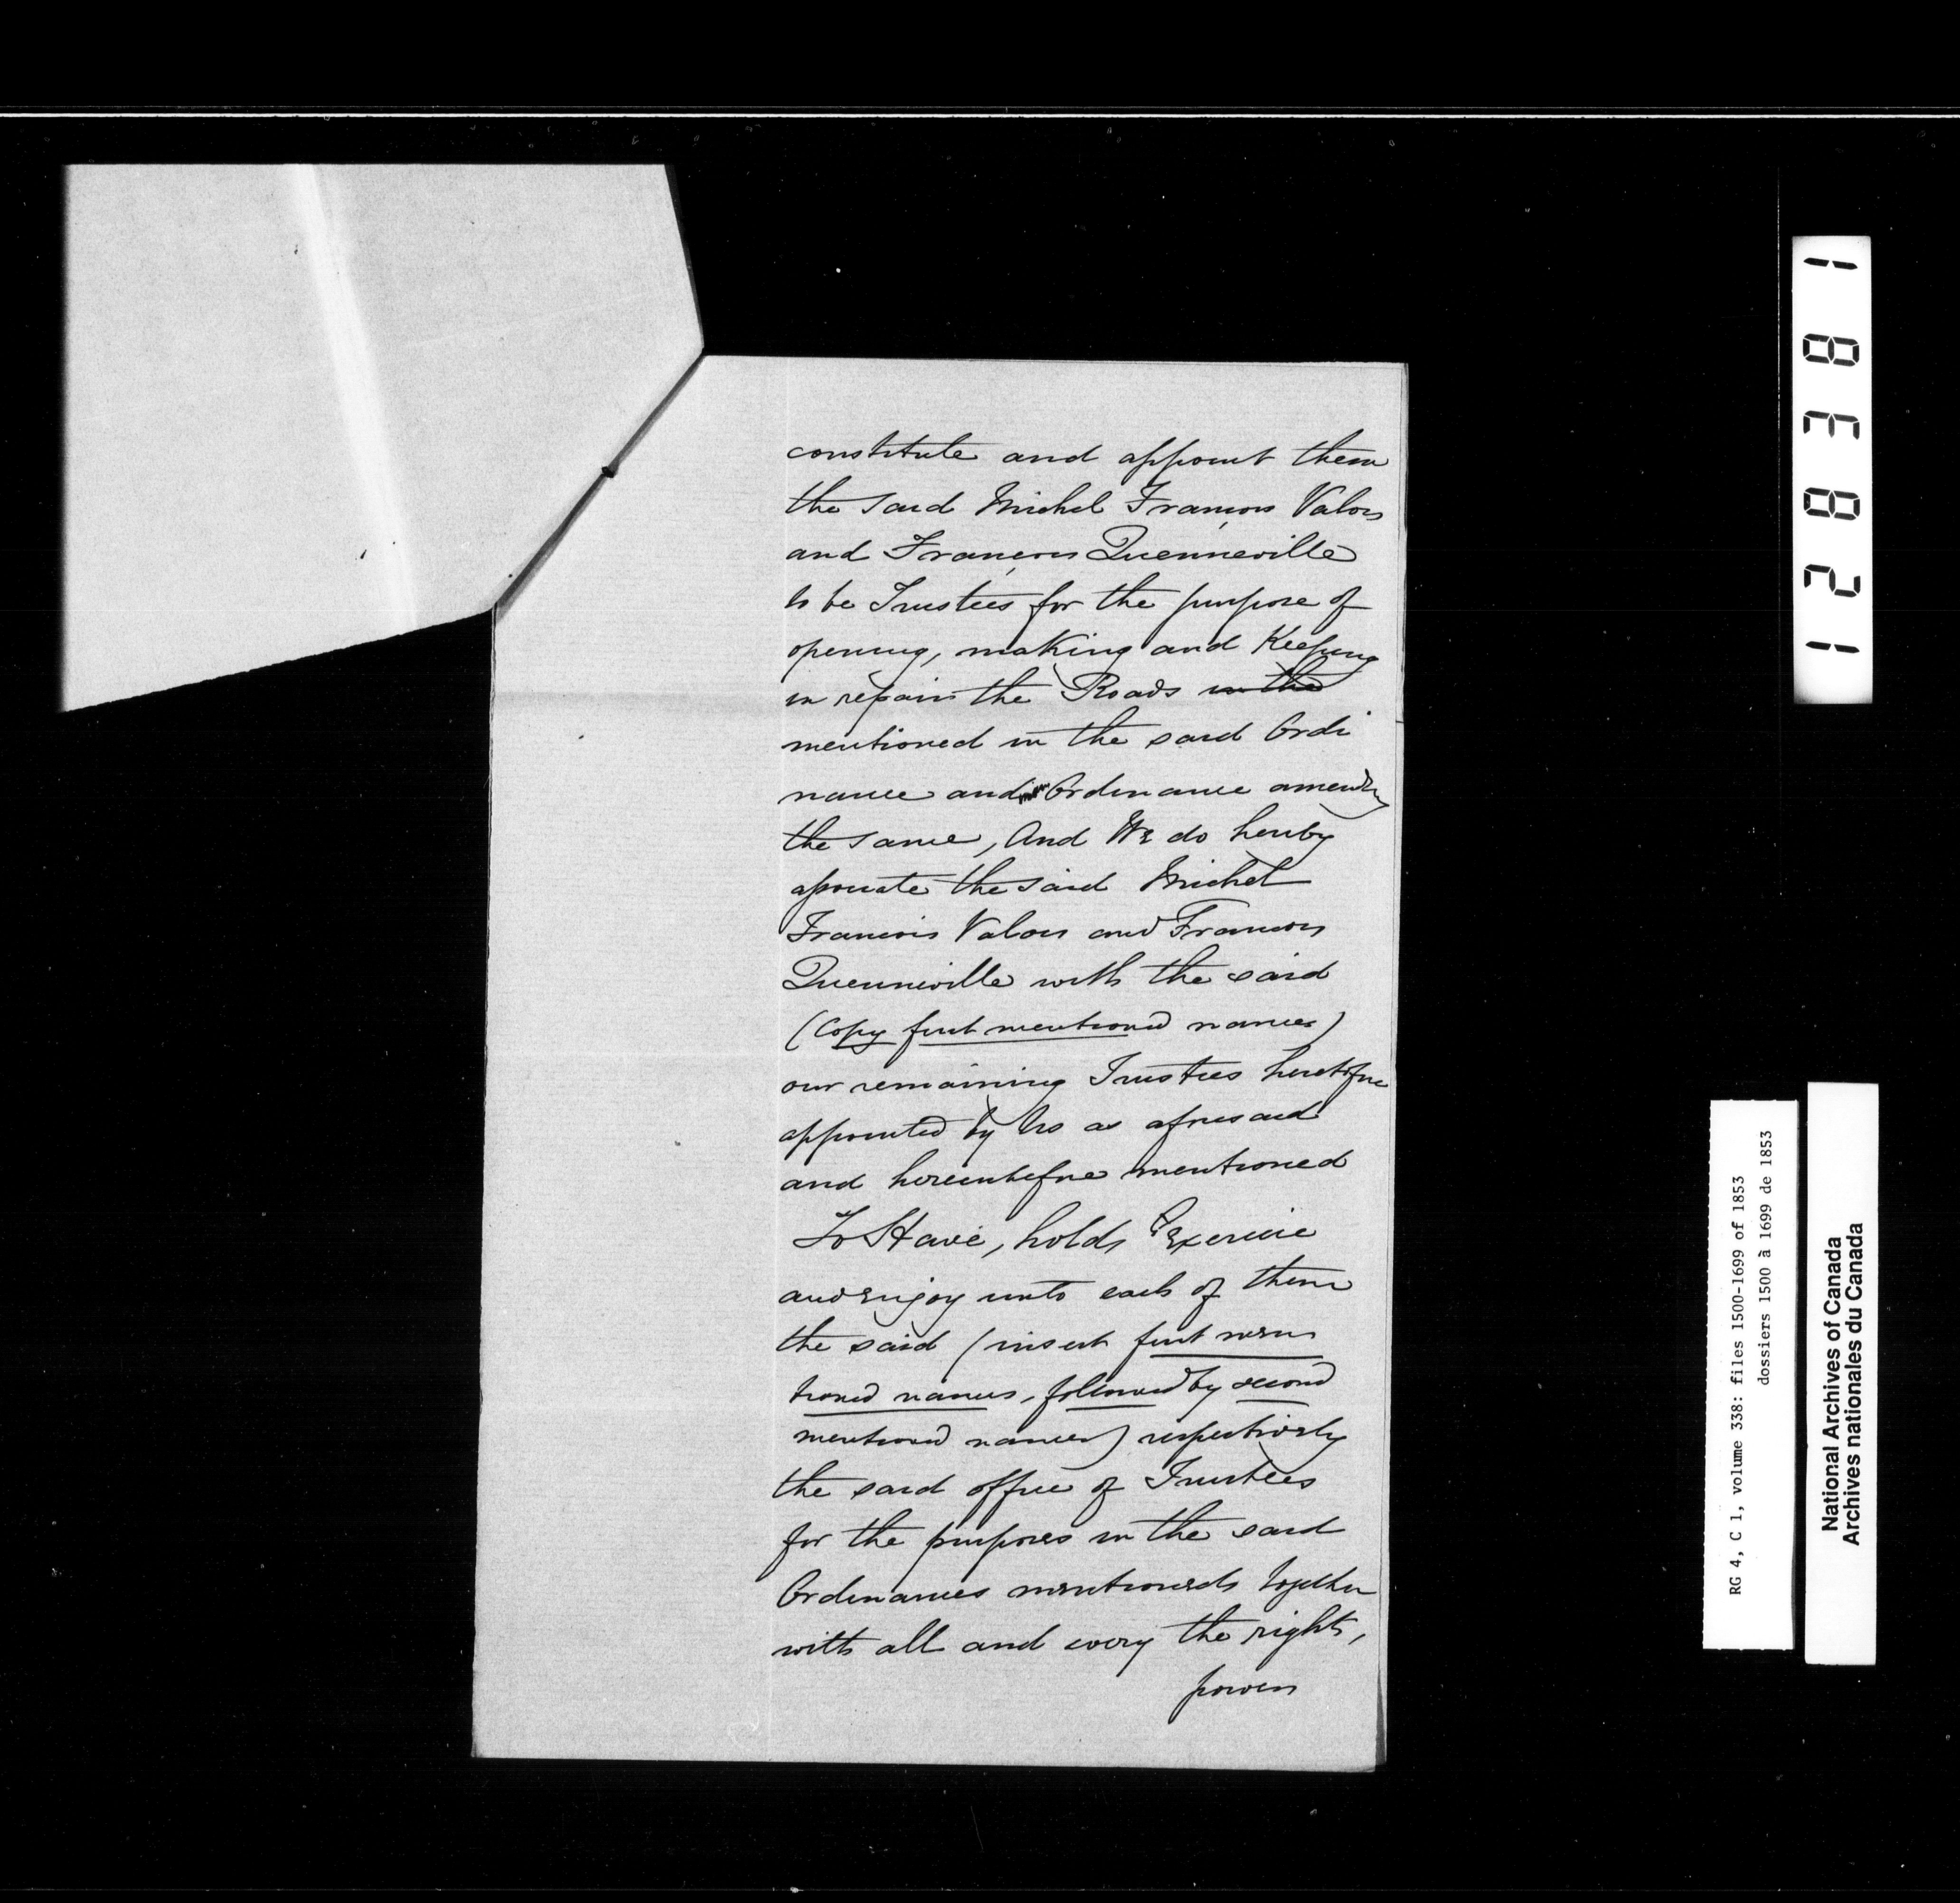 constitute and appoint them
the said Michel François Valois
and François Quenneville
to be Trustees for the purpose of
opening, making and Keeping
in repair the Roads in the
mentioned in the said Ordi
nance and Ordinance amending
the same, And We do hereby
associate the said Michel
François Valois and François
Quenneville with the said
(Copy first mentioned names)
our remaining Trustees heretofore
appointed by Us as aforesaid
and hereinbefore mentioned
To Have, hold, Exercise
and enjoy unto each of them
the said (insert first men
tioned names, followed by second
mentioned names) respectively
the said office of Trustees
for the purposes in the said
Ordinances mentioned, together
with all and every the rights,
powers
128381
RG 4, C 1, volume 338: files 1500-1699 of 1853
dossiers 1500 à 1699 de 1853
National Archives of Canada
Archives nationales du Canada